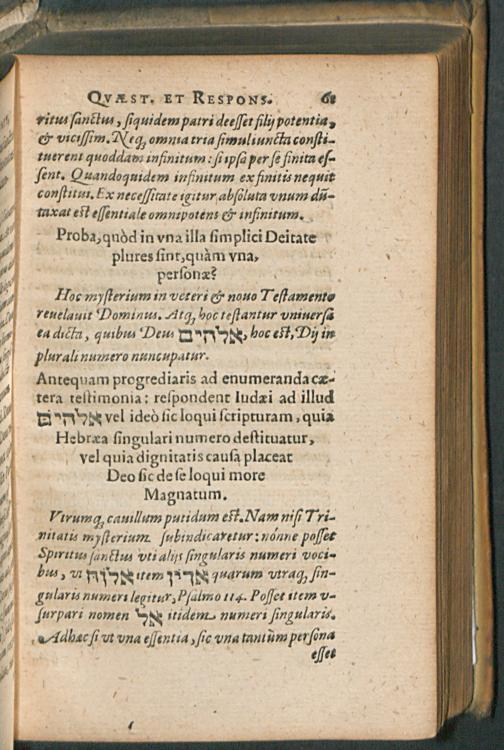 QVÆST. ET RESPONS. 61
ritus sanctus, siquidem patri deesset filij potentia,
& vicissim. Neq; omnia tria simul iuncta consti-
tuerent quoddam infinitum: si ipsa per se finita es-
sent. Quandoquidem infinitum ex finitis nequit
constitui. Ex necessitate igitur absoluta vnum dū-
taxat est essentiale omnipotens & infinitum.
Proba, quòd in vna illa simplici Deitate
plures sint, quàm vna,
personæ?
Hoc mysterium in veteri & nouo Testamento
reuelauit Dominus. Atq; hoc testantur vniuersa
ea dicta, quibus Deus אלהים, hoc est, Dij in
plurali numero nuncupatur.
Antequam progrediaris ad enumeranda cæ-
tera testimonia: respondent Iudæi ad illud
אלהים vel ideò sic loqui scripturam, quia
Hebræa singulari numero destituatur,
vel quia dignitatis causa placeat
Deo sic de se loqui more
Magnatum.
Vtrumq; cauillum putidum est. Nam nisi Tri-
nitatis mysterium subindicaretur: nónne posset
Spiritus sanctus vti alijs singularis numeri voci-
bus, vt אלוה item אדון quarum vtraq; sin-
gularis numeri legitur, Psalmo 114. Posset item v-
surpari nomen אל itidem numeri singularis.
Adhæc si vt vna essentia, sic vna tantùm persona
esset